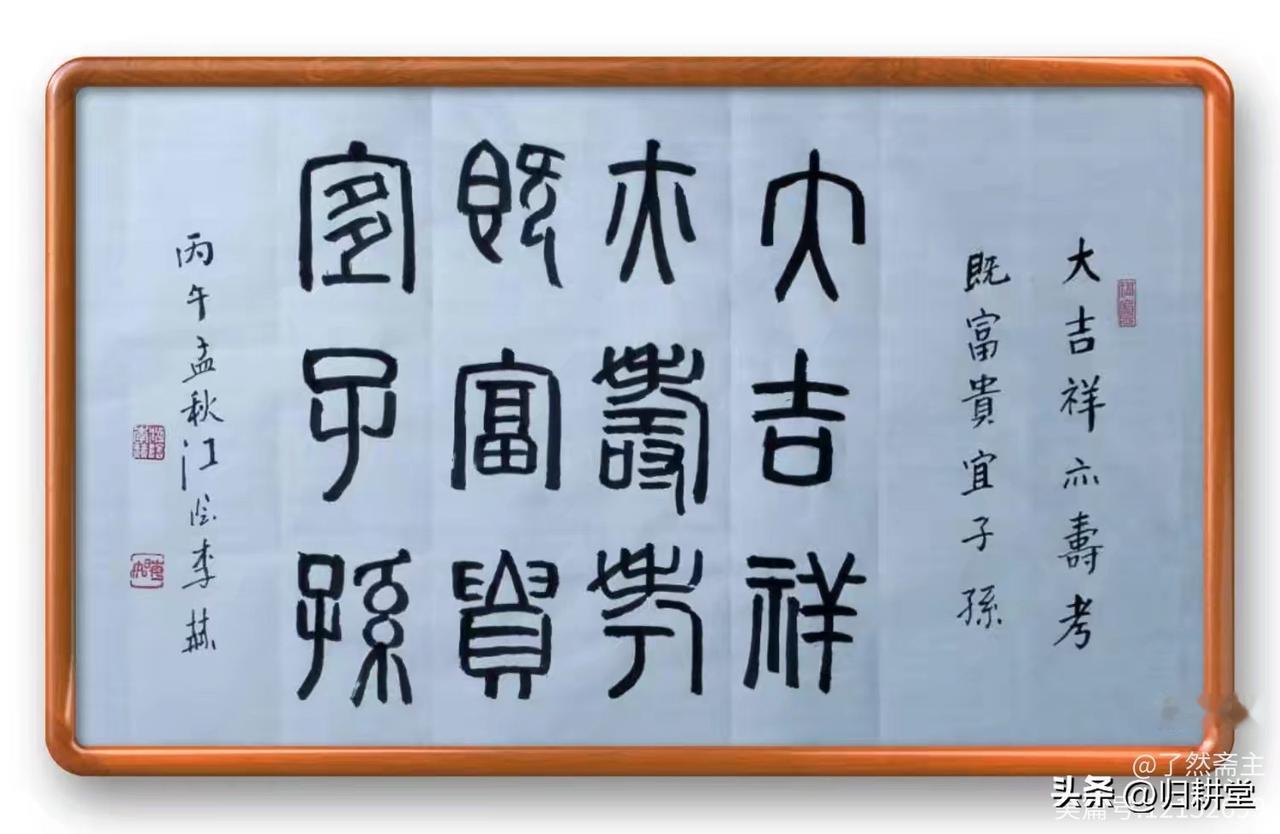 大吉祥亦壽考
既富貴宜子孫
大吉祥
亦壽考
既富貴
宜子孫
丙午孟秋江李
@了然斋主
头条 @归耕堂